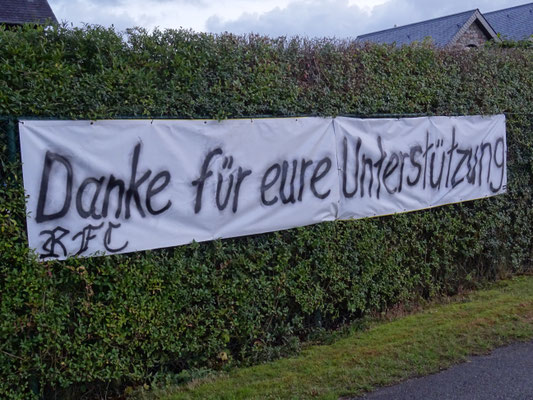 Danke für eure Unterstützung
RFC